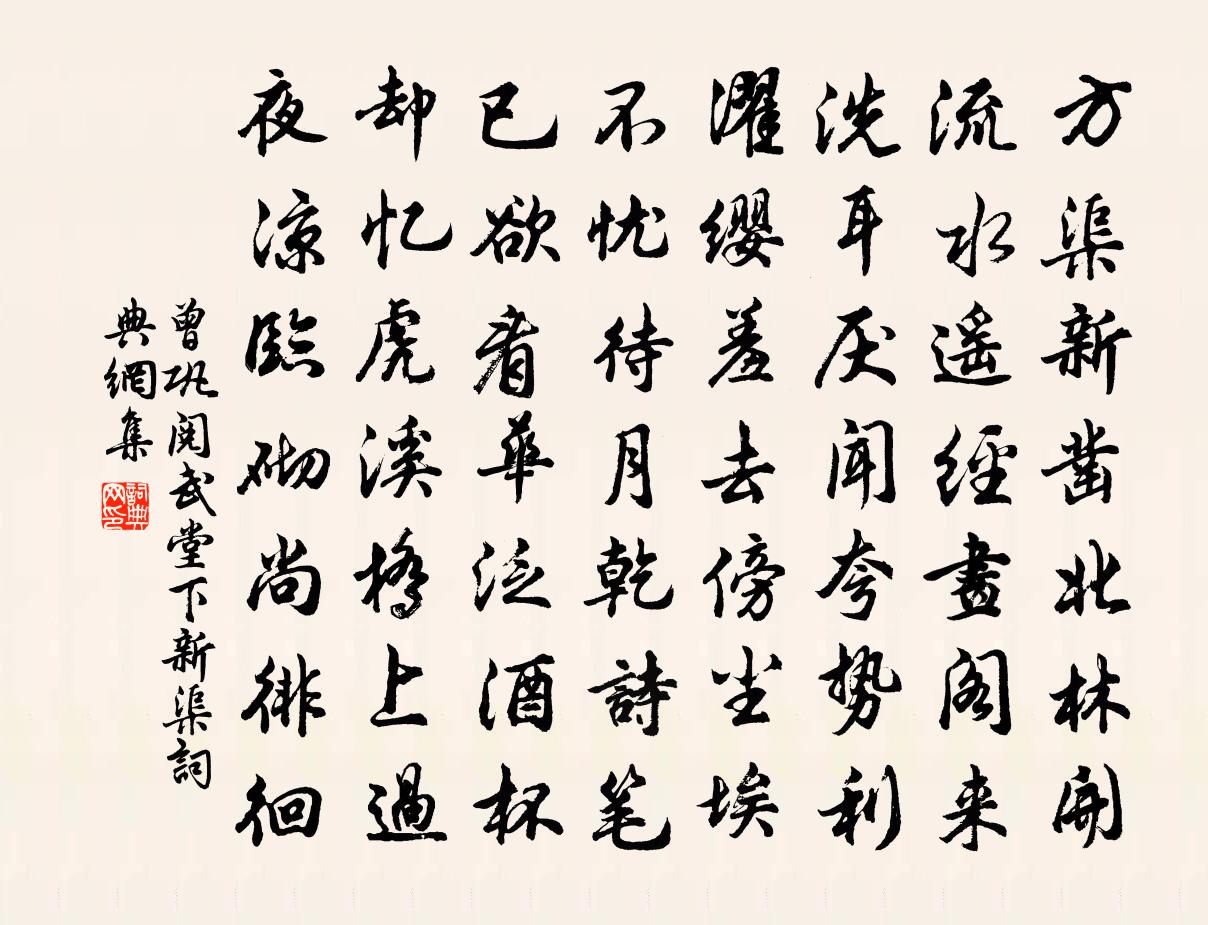 方渠新凿北林開
流水遥經畫阁来
洗耳厌闻夸势利
濯缨羞去傍尘埃
不忧待月乾詩笔
已欲看華泛酒杯
却忆虎溪橋上過
夜凉臨砌尚徘徊
曾巩阅武堂下新渠詞
典網集
詞典网印